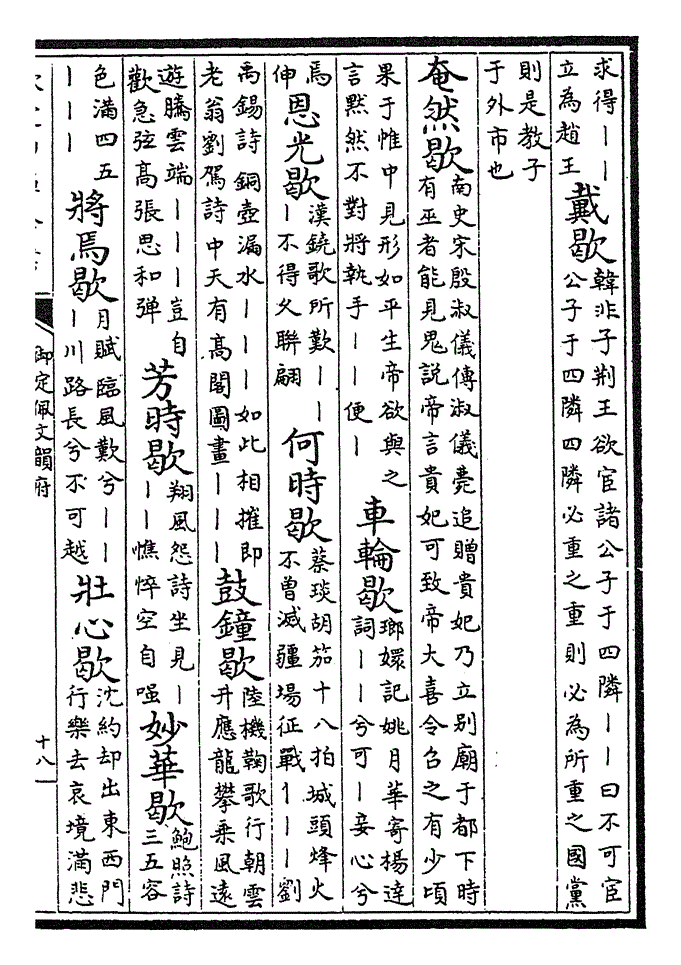 求得丨丨
立為趙王
戴歇
韓非子荆王欲宦諸公子于四隣丨丨曰不可宦
公子于四隣四隣必重之重則必為所重之國黨
則是教子
于外市也
奄然歇
南史宋殷淑儀傳淑儀薨追贈貴妃乃立别廟于都下時
有巫者能見鬼説帝言貴妃可致帝大喜令召之有少頃
果于帷中見形如平生帝欲與之
言黙然不對將執手丨丨便丨
車輪歇
瑯嬛記姚月華寄楊達
詞丨丨兮可丨妾心兮
焉
伸
恩光歇
漢鐃歌所歎丨丨
丨不得久聯翩
何時歇
蔡琰胡笳十八拍城頭烽火
不曾滅疆場征戰丨丨丨劉
禹錫詩銅壺漏水丨丨丨如此相摧即
老翁劉駕詩中天有髙閣圖畫丨丨丨
鼓鐘歇
陸機鞠歌行朝雲
升應龍攀乘風逺
遊騰雲端丨丨丨豈自
歡急弦髙張思和弹
芳時歇
翔風怨詩坐見丨
丨丨憔悴空自嗤
妙華歇
鮑照詩
三五容
色滿四五
丨丨丨
將焉歇
月賦臨風歎兮丨丨
丨川路長兮不可越
壯心歇
沈約却出東西門
行樂去哀境滿悲
御定佩文韻府
十八